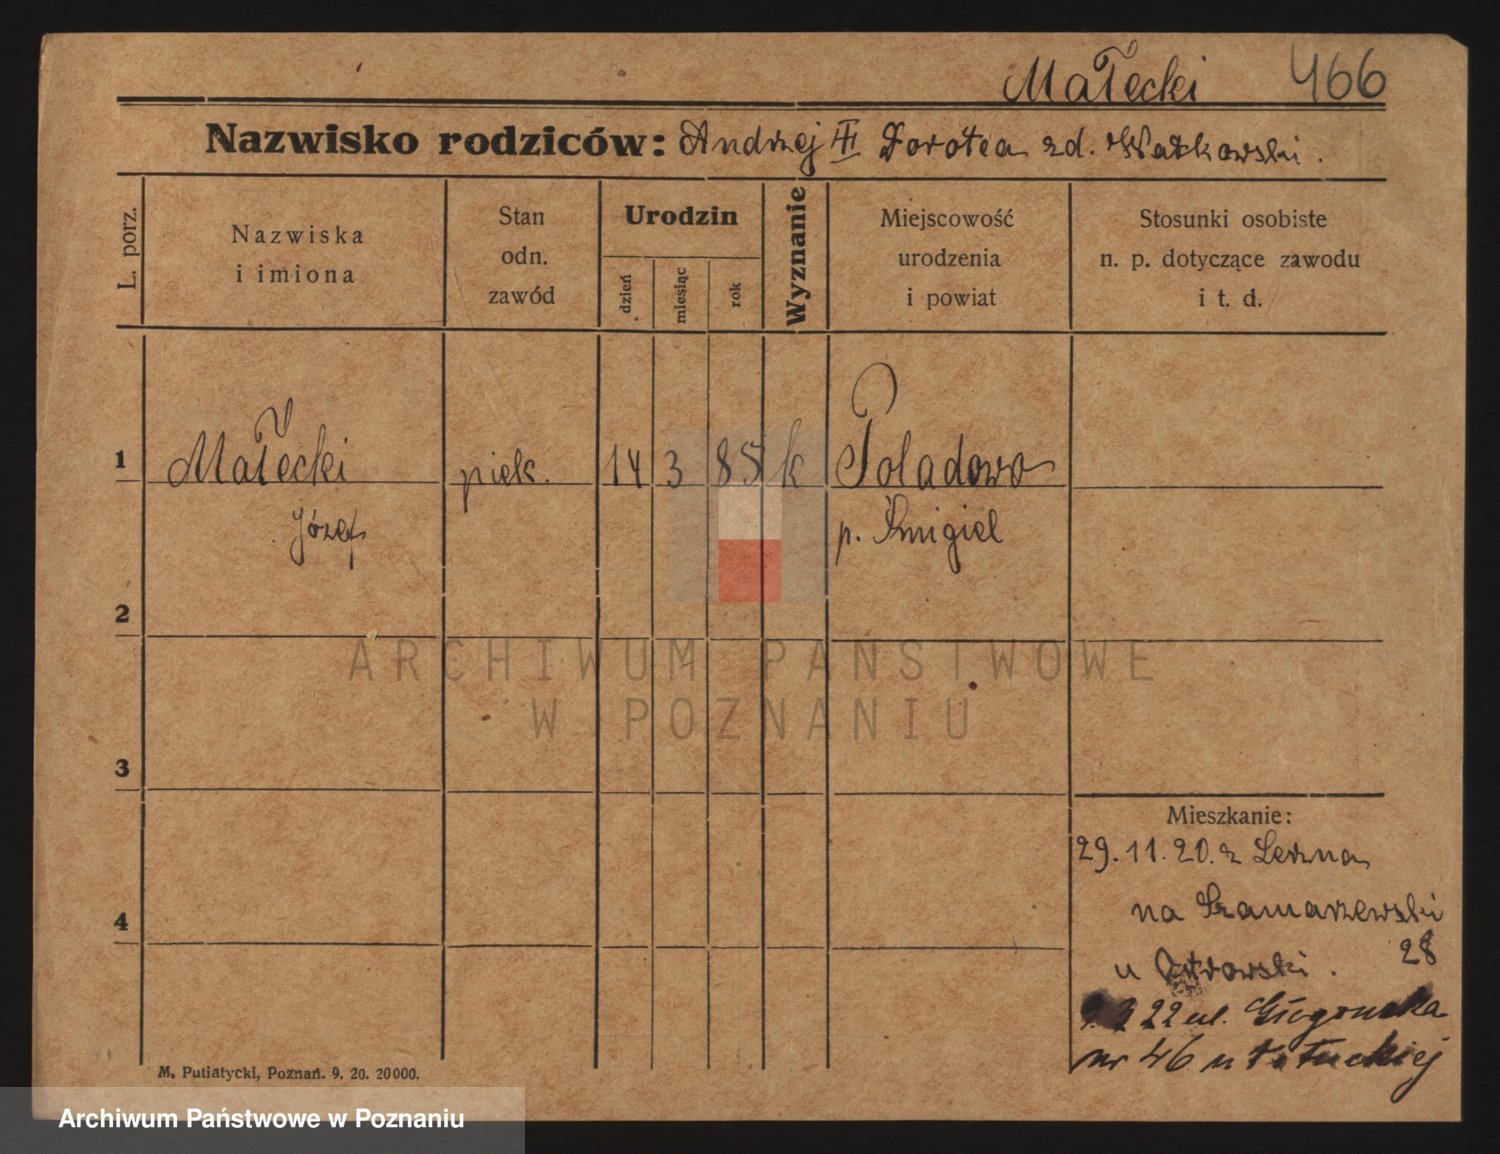 Małecki 466
Nazwisko rodziców: Andrzej III Dorotea zd. Watkowski.
L. porz.
Nazwiska
i imiona
Stan
odn.
zawód
Urodzin
dzień
miesiąc
rok
Wyznanie
Miejscowość
urodzenia
i powiat
Stosunki osobiste
n. p. dotyczące zawodu
i t. d.
1 Małecki piek. 14 3 85 k Poladowo
Józef p. Śmigiel
2
3
4
Mieszkanie:
29.11.20. z
na Szamarzewski
28
u Ostrowski.
22 ul. Głogowska
nr 46 u
M. Putiatycki, Poznań. 9. 20. 20000.
ARCHIWUM PAŃSTWOWE
W POZNANIU
Archiwum Państwowe w Poznaniu